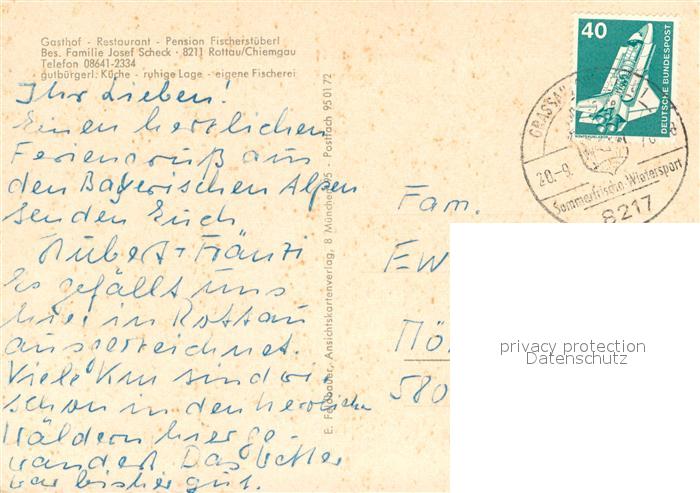 Gasthof - Restaurant - Pension Fischerstüberl
Bes. Familie Josef Scheck · 8211 Rottau/Chiemgau
Telefon 08641-2334
gutbürgerl. Küche - ruhige Lage - eigene Fischerei
Ihr Lieben!
Einen herzlichen
Feriengruß aus
den Bayerischen Alpen
senden Euch
Hubert + Fränzi
Es gefällt uns
hier in Rottau
ausgezeichnet.
Viele Km sind wir
schon in den herrlichen
Wäldern hier ge-
wandert. Das Wetter
war bisher gut.
E. Feldbauer, Ansichtskartenverlag, 8 München 95 - Postfach 95 01 72
40
DEUTSCHE BUNDESPOST
GRASSAU
20.-9.
Sommerfrische-Wintersport
8217
Fam.
EW
580
privacy protection
Datenschutz